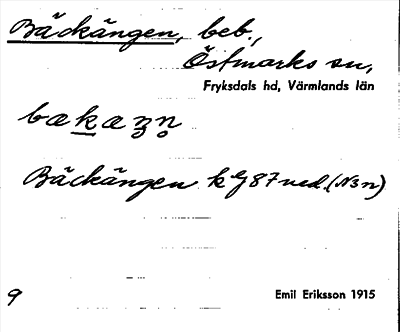 Bäckängen, beb.,
Östmarks sn,
Fryksdals hd, Värmlands län
bækæʒn̥
Bäckängen k
9
Emil Eriksson 1915